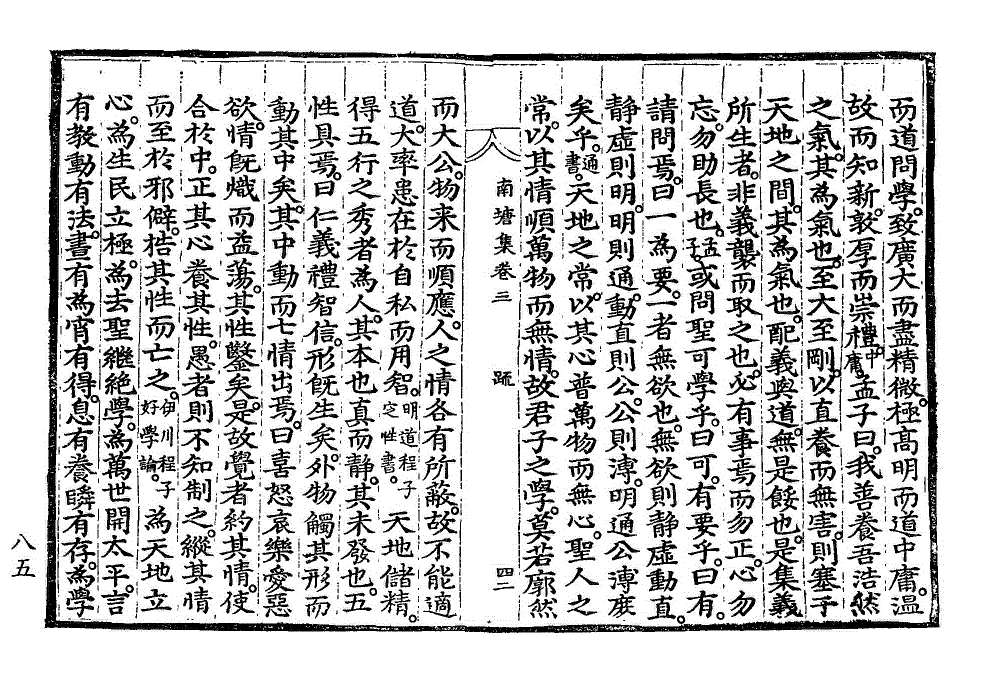 而道問學。致廣大而盡精微。極高明而道中庸。溫
故而知新。敦厚而崇禮。中庸 孟子曰。我善養吾浩然
之氣。其爲氣也。至大至剛。以直養而無害。則塞于
天地之間。其爲氣也。配義與道。無是餒也。是集義
所生者。非義襲而取之也。必有事焉而勿正。心勿
忘。勿助長也。孟子 或問聖可學乎。曰可。有要乎。曰有。
請問焉。曰一爲要。一者無欲也。無欲則静虛動直。
静虛則明。明則通。動直則公。公則溥。明通公溥庶
矣乎。通書。 天地之常。以其心普萬物而無心。聖人之
常。以其情順萬物而無情。故君子之學。莫若廓然
南塘集卷三 疏 四二
而大公。物來而順應。人之情各有所蔽。故不能適
道。大率患在於自私而用智。明道程子定性書。 天地儲精。
得五行之秀者爲人。其本也眞而静。其未發也。五
性具焉。曰仁義禮智信。形旣生矣。外物觸其形而
動其中矣。其中動而七情出焉。曰喜怒哀樂愛惡
欲。情旣熾而益蕩。其性鑿矣。是故覺者約其情。使
合於中。正其心養其性。愚者則不知制之。縱其情
而至於邪僻。梏其性而亡之。伊川程子好學論。 爲天地立
心。爲生民立極。爲去聖繼絶學。爲萬世開太平。言
有敎動有法。晝有爲宵有得。息有養瞬有存。爲學
八五